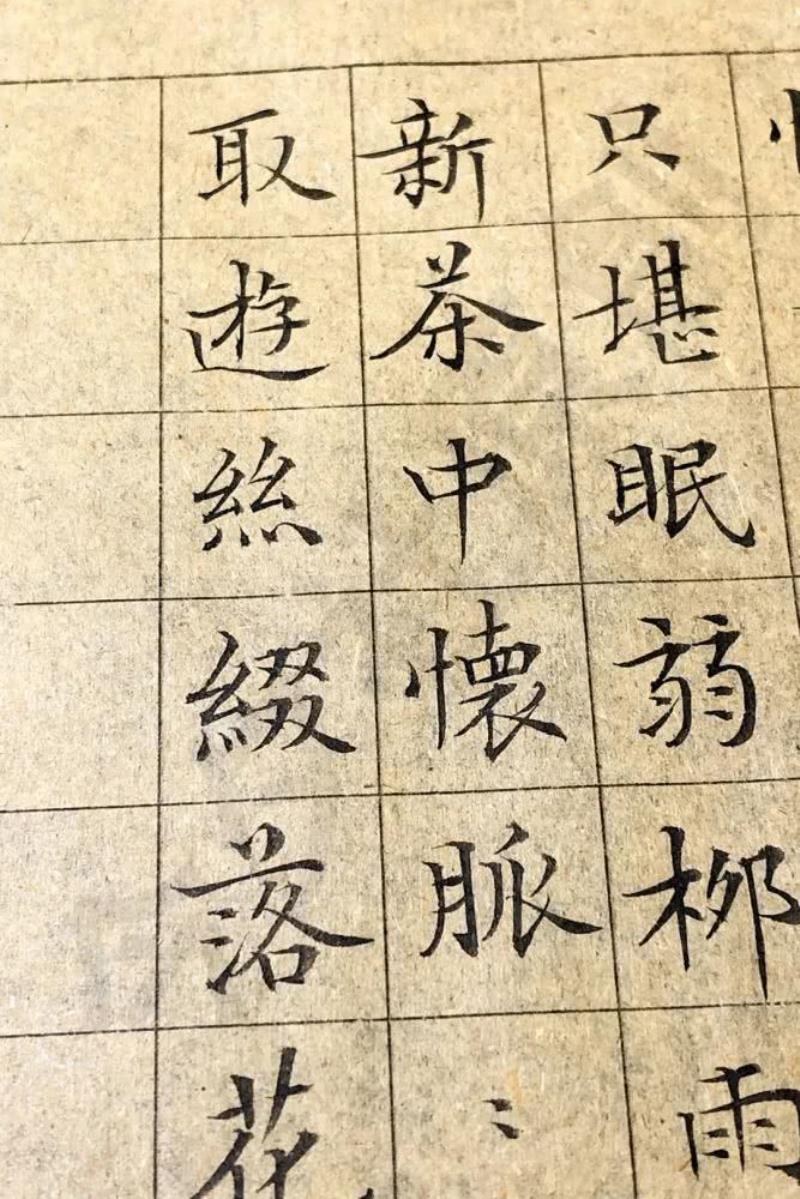 只堪眠弱柳雨
新茶中懷脈〻
取遊絲綴落花